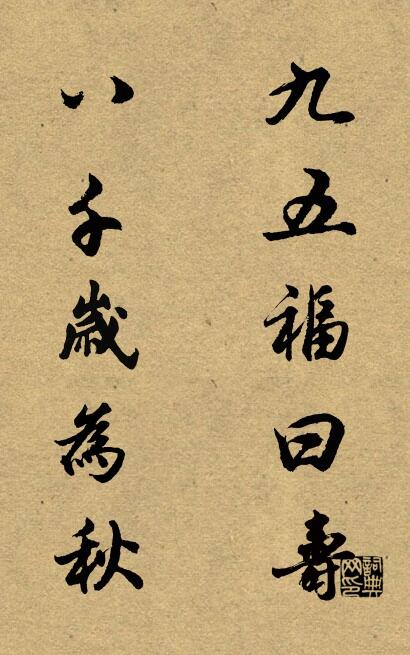 九五福曰壽
八千歲為秋
詞典網印